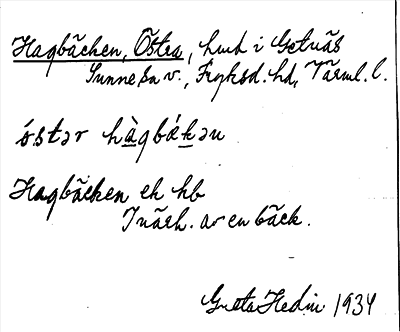 Hagbäcken, Östra, hmd i Getnäs
Sunne sn v., Fryksd. hd, Värml. l.
östər hàgbækən
Hagbäcken ek hb
I närh. av en bäck.
Greta Hedin 1934